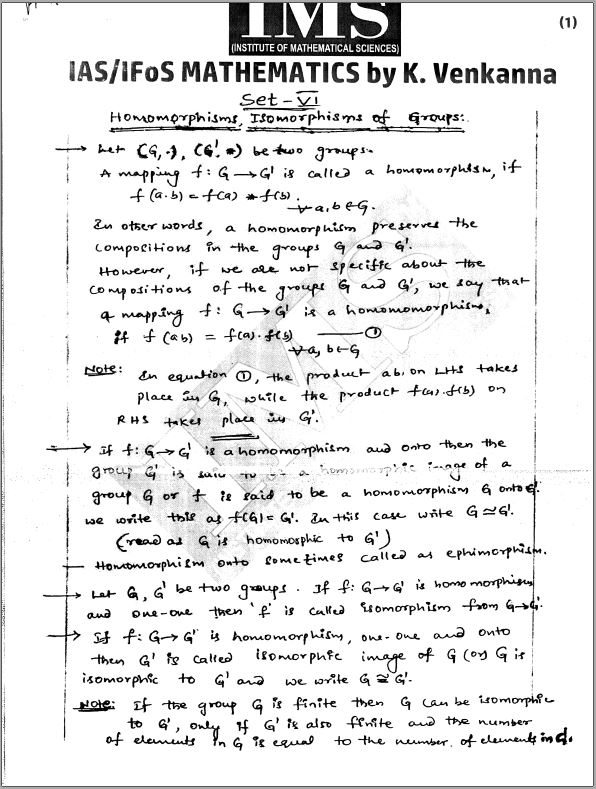 (1)
IMS
(INSTITUTE OF MATHEMATICAL SCIENCES)
IAS/IFoS MATHEMATICS by K. Venkanna
Set-VI
Homomorphisms, Isomorphisms of Groups:.
→ Let (G, ·), (G', *) be two groups.
A mapping f: G → G' is called a homomorphism, if
f(a·b) = f(a) * f(b).
∀ a, b ∈ G.
In other words, a homomorphism preserves the
compositions in the groups G and G'.
However, if we are not specific about the
compositions of the groups G and G', we say that
a mapping f: G → G' is a homomomorphism,
if f(ab) = f(a)·f(b) —— ①
∀ a, b ∈ G
Note: In equation ①, the product ab, on LHS takes
place in G, while the product f(a)·f(b) on
RHS takes place in G'.
→ If f: G → G' is a homomorphism and onto then the
group G' is said to be a homomorphic image of a
group G or f is said to be a homomorphism G onto G'.
we write this as f(G) = G'. In this case write G ≃ G'.
(read as G is homomosphic to G')
— Homomorphism onto sometimes called as ephimorphism.
→ Let G, G' be two groups. If f: G → G' is homomorphism
and one-one then 'f' is called isomorphism from G → G'.
→ If f: G → G' is homomorphism, one-one and onto
then G' is called isomorphic image of G (or) G is
isomorphic to G' and we write G ≅ G'.
Note: If the group G is finite then G can be isomorphic
to G', only if G' is also finite and the number
of elements in G is equal to the number of elements in G'.
IMS